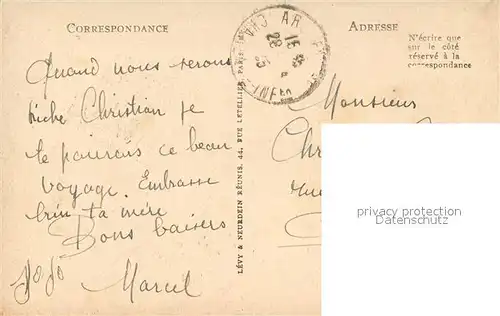 CORRESPONDANCE
ADRESSE
N'écrire que
sur le côté
réservé à la
correspondance
Quand nous serons
riche Christian je
te
ce beau
voyage. Embrasse
bien ta mère
Bons baisers
Marcel
LÉVY & NEURDEIN RÉUNIS, 44, RUE LETELLIER, PARIS
Monsieur
privacy protection
Datenschutz